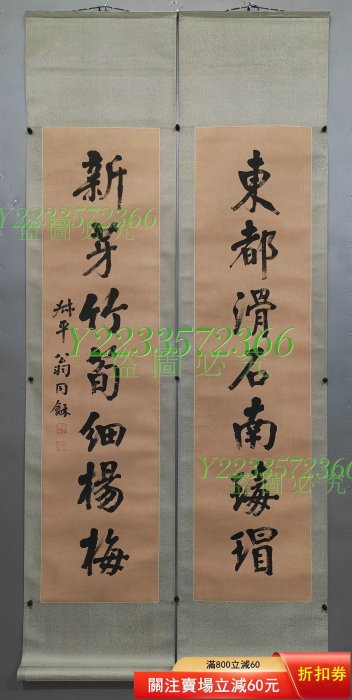 東都滑石南瑇瑁
新芽竹萌細楊梅
叔平翁同龢
Y2233572366
盜圖必究
Y2233572366
盜圖必究
Y2233572366
盜圖必究
滿800立減60
關注賣場立減60元
折扣券